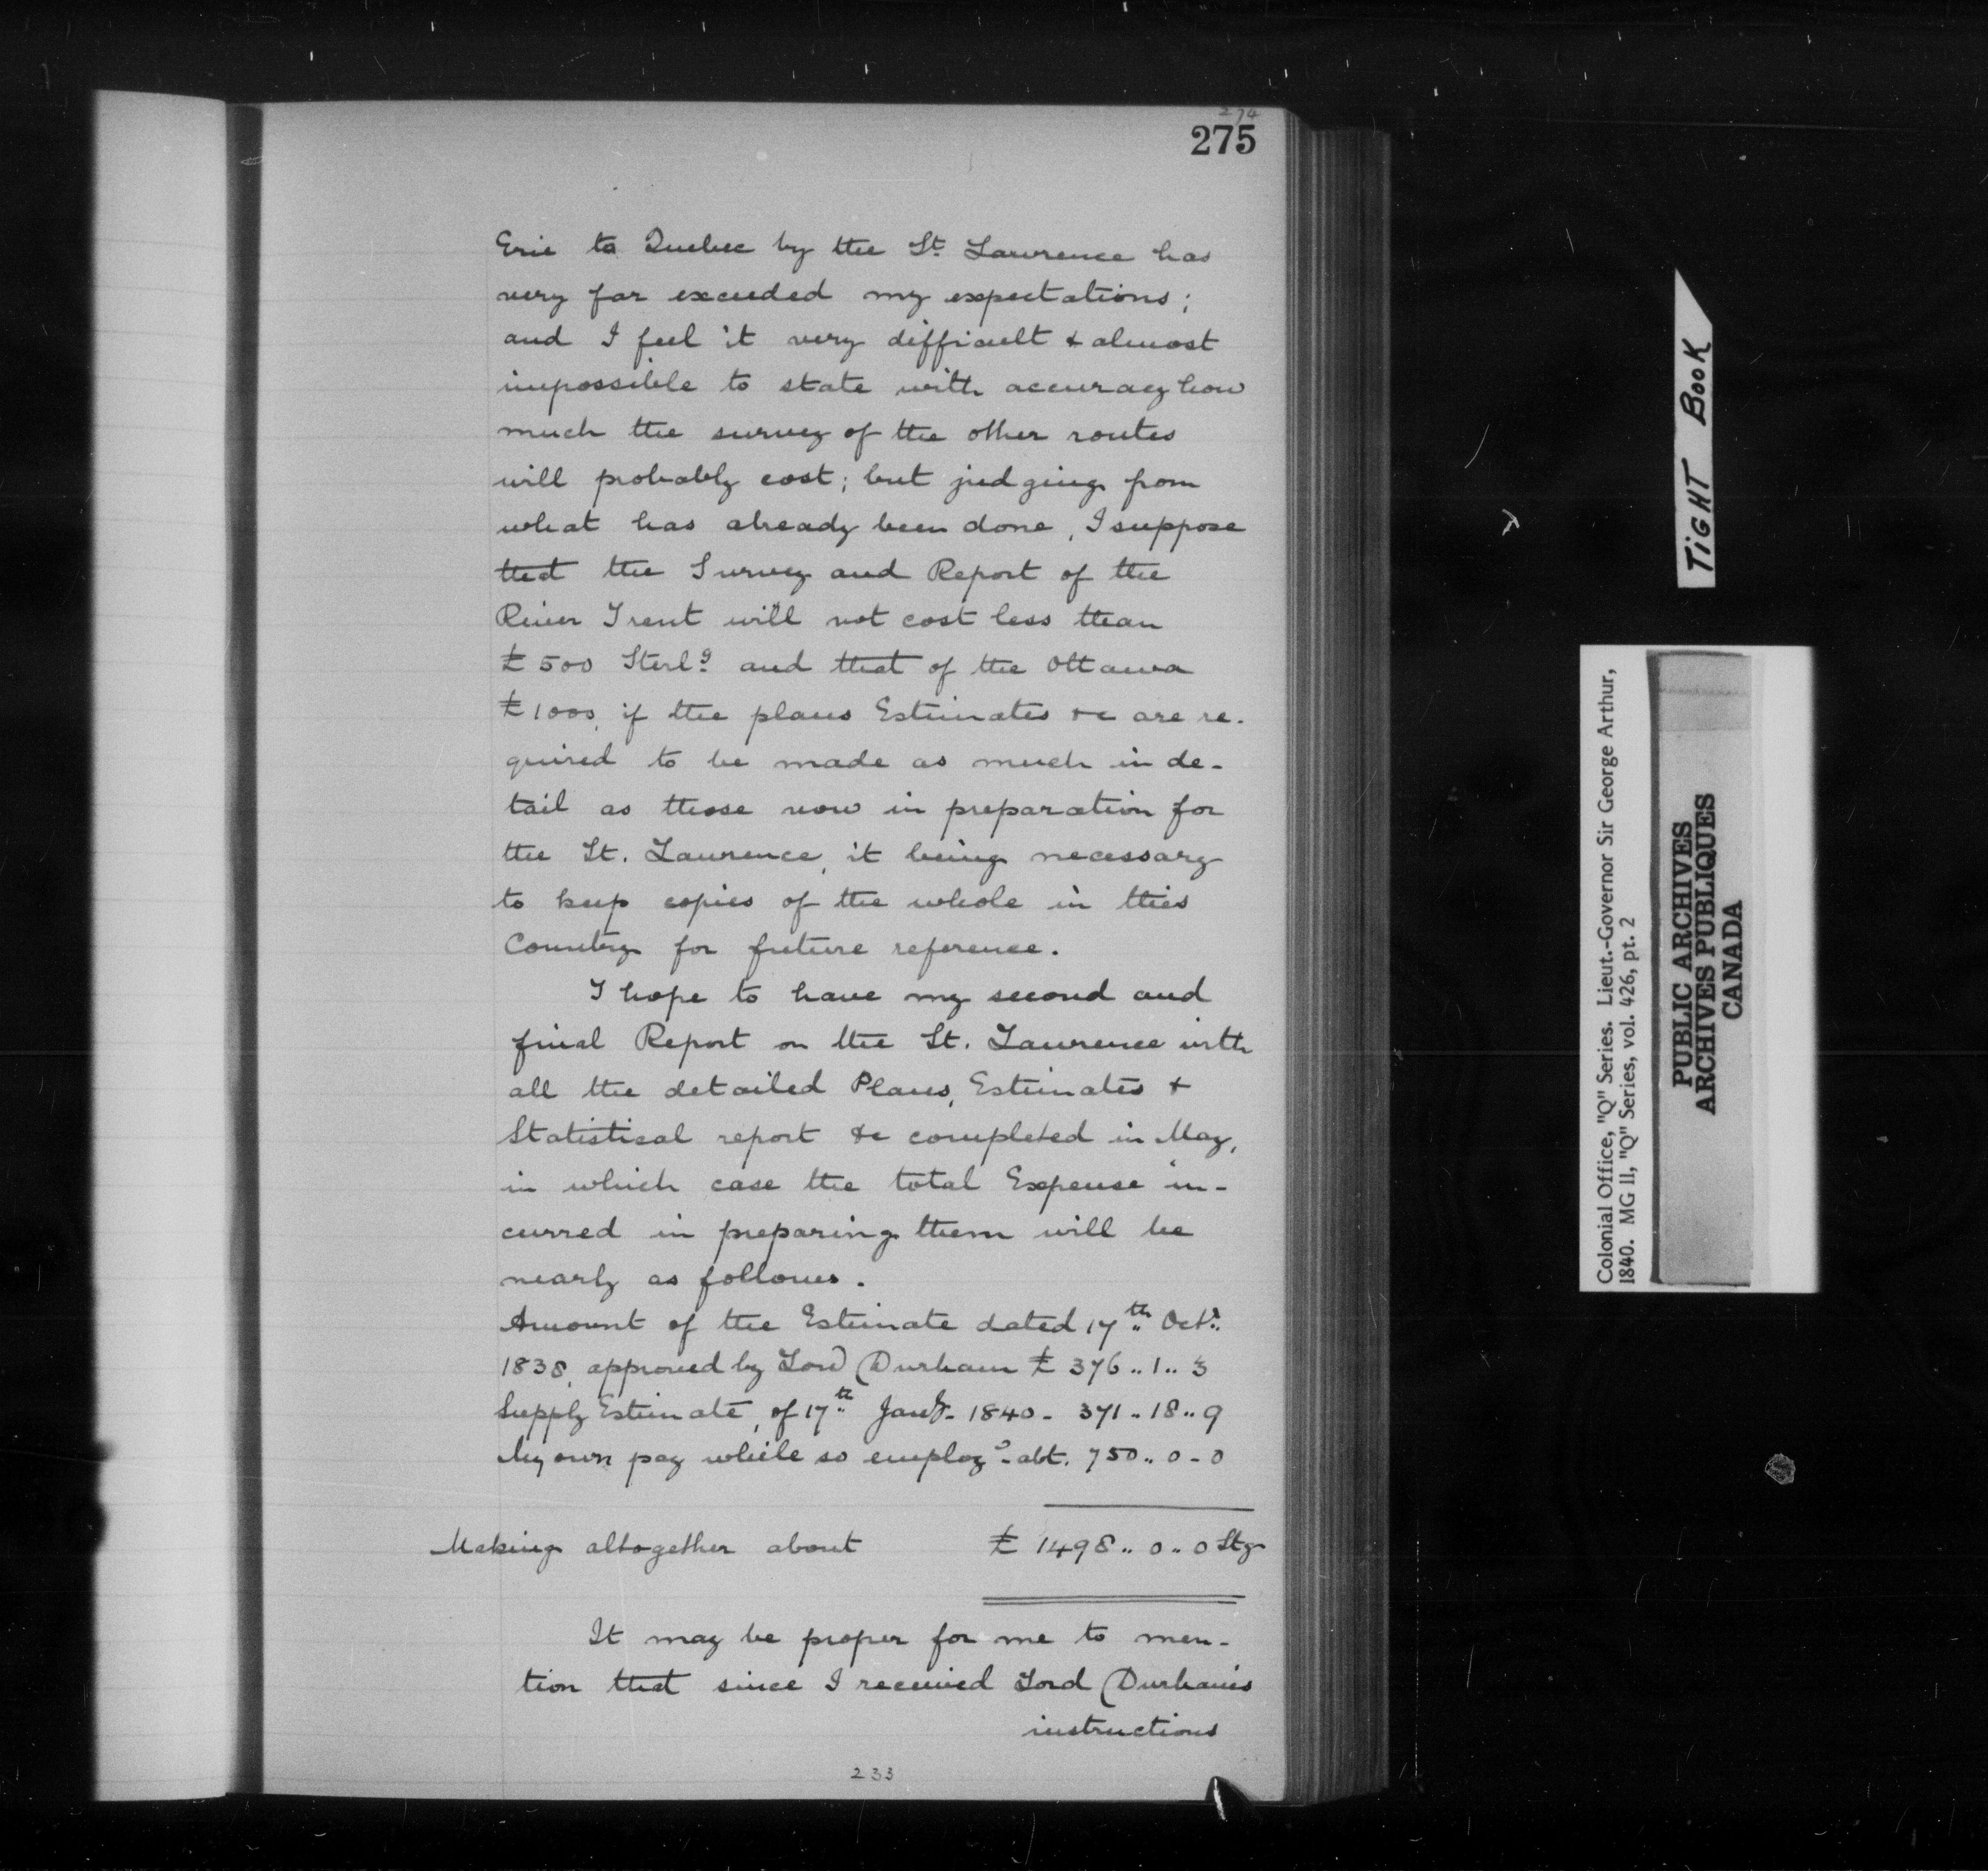 274
275
Erie to Quebec by the St. Lawrence has
very far exceeded my expectations;
and I feel it very difficult & almost
impossible to state with accuracy how
much the survey of the other routes
will probably cost; but judging from
what has already been done, I suppose
that the Survey and Report of the
River Trent will not cost less than
£500 Sterlg and that of the Ottawa
£1000, if the plans Estimates &c are re-
quired to be made as much in de-
tail as those now in preparation for
the St. Lawrence, it being necessary
to keep copies of the whole in this
Country for future reference.
I hope to have my second and
final Report on the St. Lawrence with
all the detailed Plans, Estimates &
Statistical report &c completed in May,
in which case the total Expense in-
curred in preparing them will be
nearly as follows.
Amount of the Estimate dated 17th Octr
1838, approved by Lord Durham £ 376 .. 1 .. 3
Supply Estimate, of 17th Jany - 1840 - 371 .. 18 .. 9
My own pay while so employd - abt. 750 .. 0 - 0
Making altogether about £ 1498 .. 0 .. 0 Stg
It may be proper for me to men-
tion that since I received Lord Durham's
instructions
233
TIGHT BOOK
Colonial Office, "Q" Series. Lieut.-Governor Sir George Arthur,
1840. MG II, "Q" Series, vol. 426, pt. 2
PUBLIC ARCHIVES
ARCHIVES PUBLIQUES
CANADA